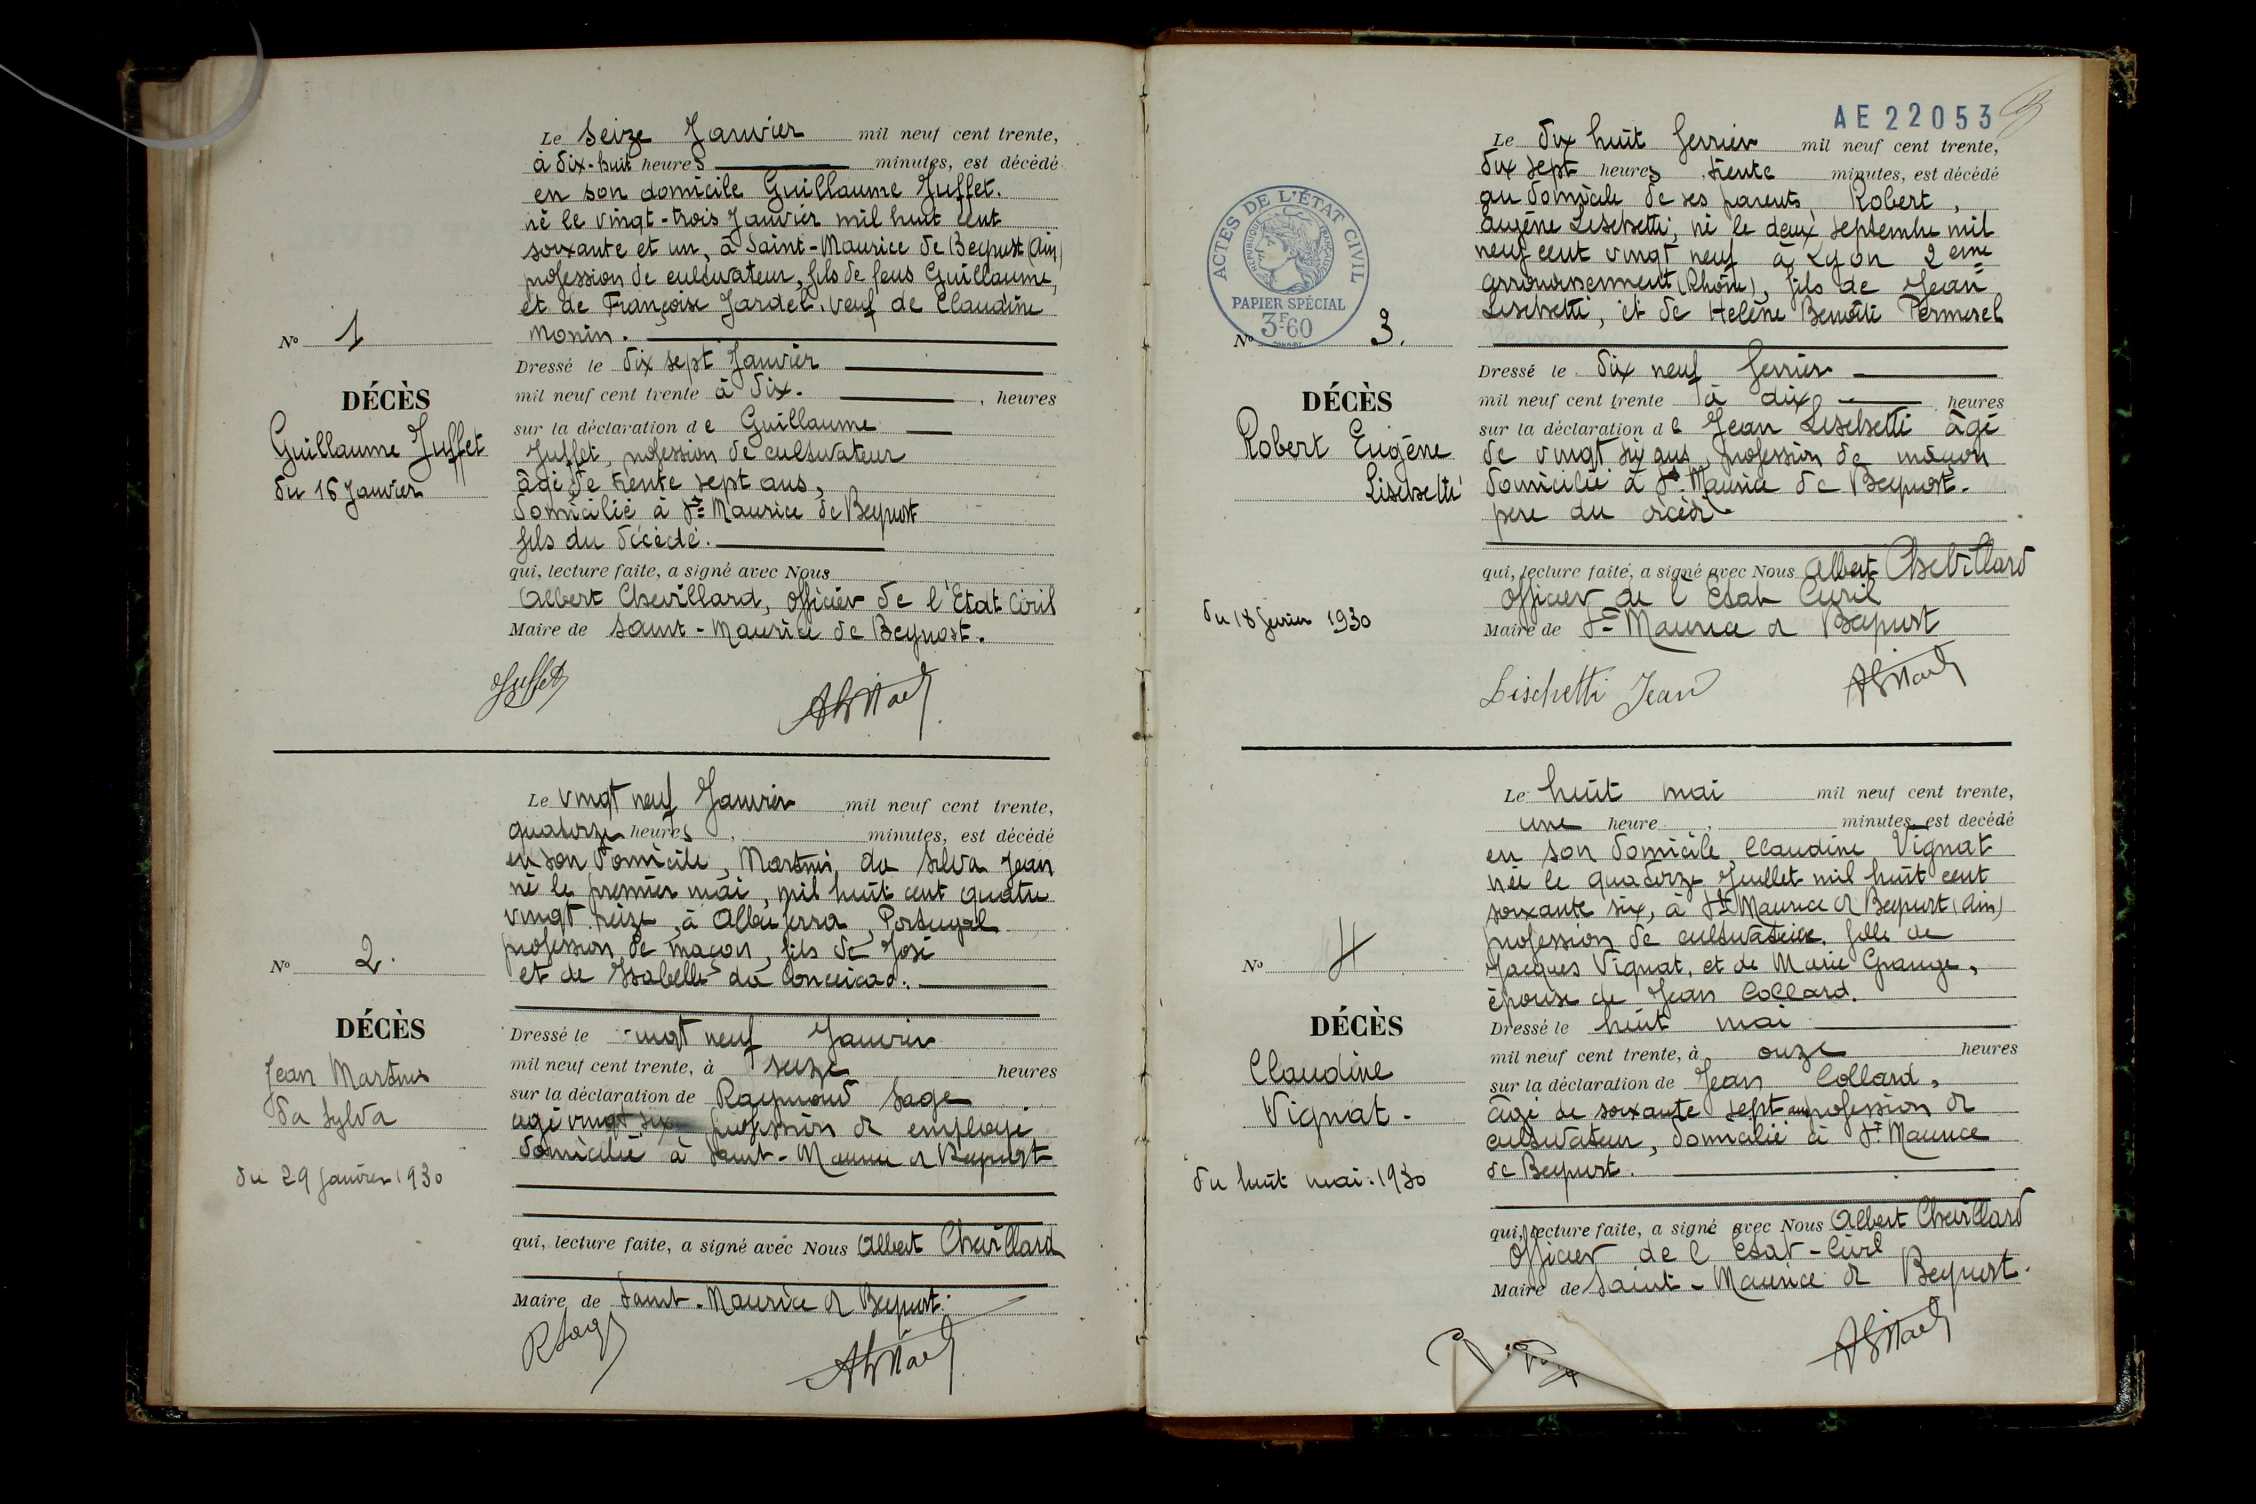 Le seize Janvier mil neuf cent trente,
à dix-huit heures minutes, est décédé
en son domicile Guillaume Juffet.
né le vingt-trois Janvier mil huit cent
soixante et un, à Saint-Maurice de Beynost (Ain)
profession de cultivateur, fils de feus Guillaume,
et de Françoise Jardet. veuf de Claudine
Monin.
No 1
DÉCÈS
Guillaume Juffet
du 16 Janvier
Dressé le dix sept Janvier
mil neuf cent trente à dix. , heures
sur la déclaration de Guillaume
Juffet, profession de cultivateur
âgé de trente sept ans,
domicilié à St Maurice de Beynost
fils du décédé.
qui, lecture faite, a signé avec Nous
Albert Chevillard, officier de l'Etat Civil
Maire de Saint-Maurice de Beynost.
Juffet
Le vingt neuf Janvier mil neuf cent trente,
quatorze heures, minutes, est décédé
en son domicile, Martins da Silva Jean
né le premier mai, mil huit cent quatre
vingt seize, à Albuferra, Portugal
profession de maçon, fils de José
et de Isabelle da Conceicao.
No 2.
DÉCÈS
Jean Martins
da Sylva
du 29 Janvier 1930
Dressé le vingt neuf Janvier
mil neuf cent trente, à seize heures
sur la déclaration de Raymond Sage
agé vingt six profession de employé
domicilié à Saint-Maurice de Beynost
qui, lecture faite, a signé avec Nous Albert Chevillard
Maire de Saint-Maurice de Beynost.
R Sage
AE 22053
Le dix huit fevrier mil neuf cent trente,
dix sept heures trente minutes, est décédé
au domicile de ses parents Robert,
Eugène Lischetti, né le deux septembre mil
neuf cent vingt neuf à Lyon 2eme
arrondissement (Rhône), fils de Jean
Lischetti, et de Helène Benoîte Permesel
ACTES DE L'ÉTAT CIVIL
RÉPUBLIQUE FRANÇAISE
PAPIER SPÉCIAL
3F60
No 3.
DÉCÈS
Robert Eugène
Lischetti
du 18 fevrier 1930
Dressé le dix neuf fevrier
mil neuf cent trente à dix heures
sur la déclaration de Jean Lischetti âgé
de vingt six ans, profession de maçon
domicilié à St. Maurice de Beynost.
pere du décédé
qui, lecture faite, a signé avec Nous Albert Chevillard
officier de l'Etat Civil
Maire de St Maurice de Beynost
Lischetti Jean
Le huit mai mil neuf cent trente,
une heure, minutes est decédé
en son domicile, Claudine Vignat
née le quatorze Juillet mil huit cent
soixante six, à St Maurice de Beynost (Ain)
profession de cultivatrice. fille de
Jacques Vignat, et de Marie Grange,
épouse de Jean Collard.
No 4
DÉCÈS
Claudine
Vignat.
du huit mai. 1930
Dressé le huit mai
mil neuf cent trente, à onze heures
sur la déclaration de Jean Collard,
âgé de soixante sept ans profession de
cultivateur, domicilié à St Maurice
de Beynost.
qui, lecture faite, a signé avec Nous Albert Chevillard
officier de l'Etat-Civil
Maire de Saint-Maurice de Beynost.